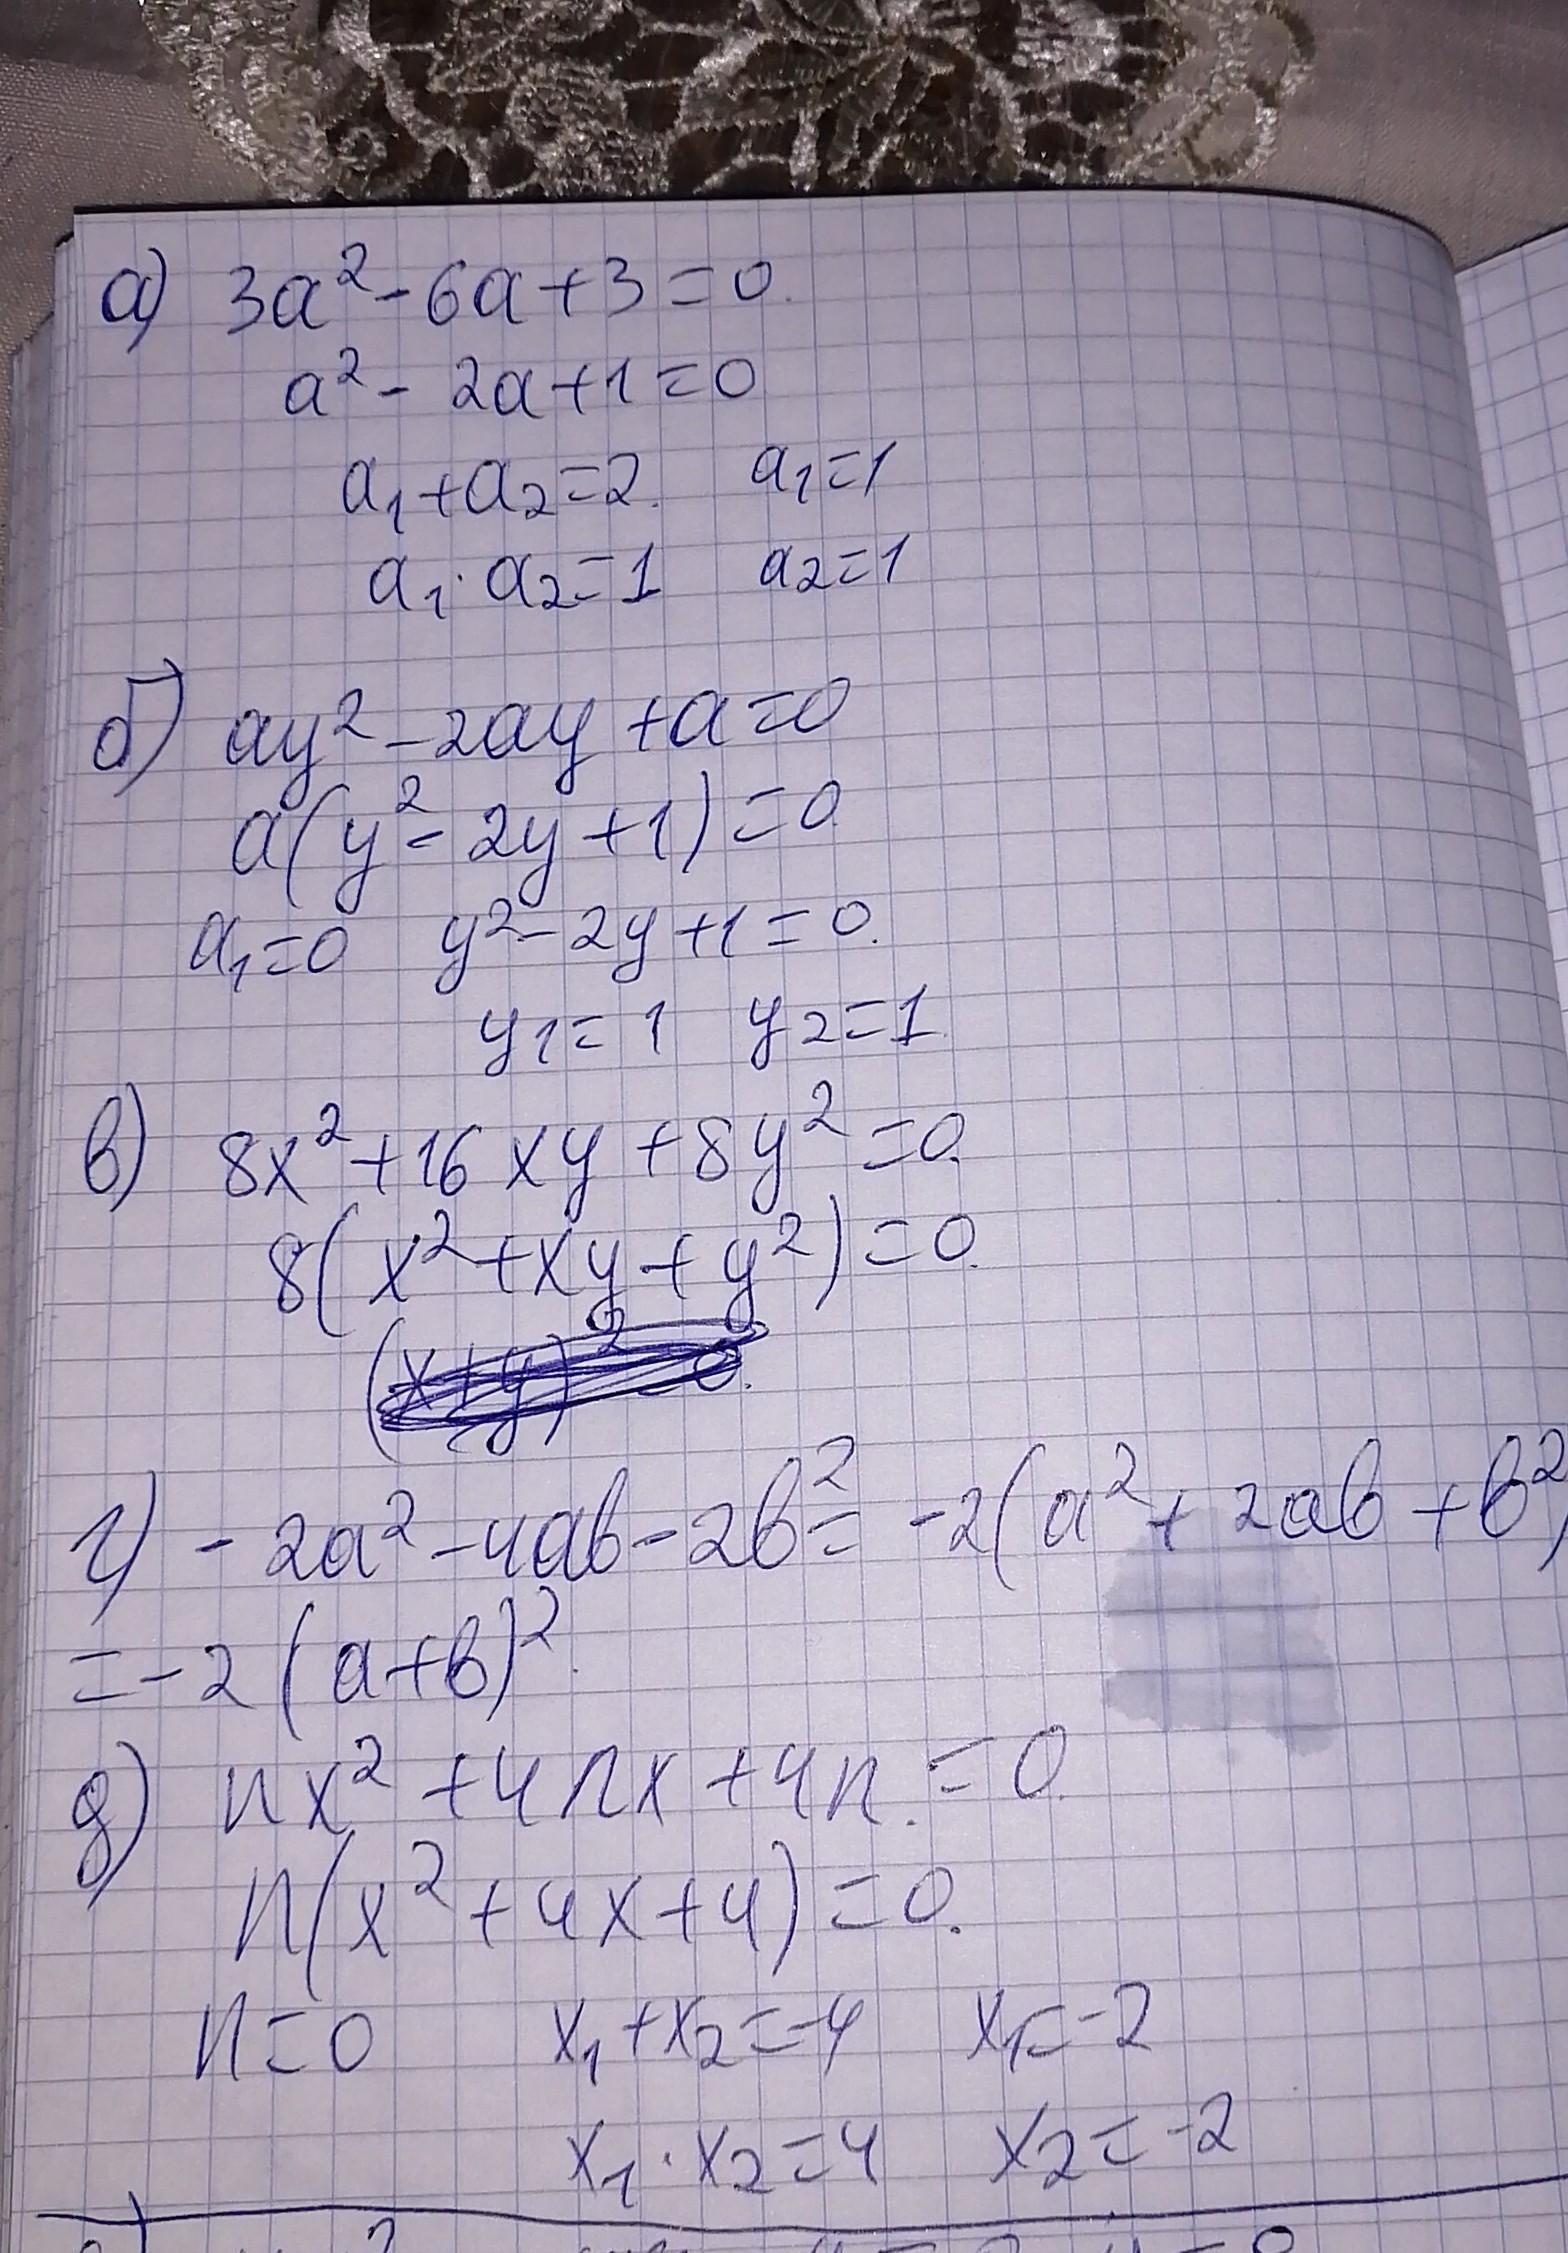 а) 3a² - 6a + 3 = 0.
a² - 2a + 1 = 0
a₁ + a₂ = 2. a₁ = 1
a₁ · a₂ = 1 a₂ = 1
б) ay² - 2ay + a = 0
a(y² - 2y + 1) = 0
a₁ = 0 y² - 2y + 1 = 0.
y₁ = 1 y₂ = 1
в) 8x² + 16xy + 8y² = 0.
8(x² + xy + y²) = 0.
(x+y)² = 0.
г) - 2a² - 4ab - 2b² = -2(a² + 2ab + b²)
= -2(a+b)².
д) nx² + 4nx + 4n. = 0.
n(x² + 4x + 4) = 0.
n = 0 x₁ + x₂ = -4 x₁ = -2
x₁ · x₂ = 4 x₂ = -2